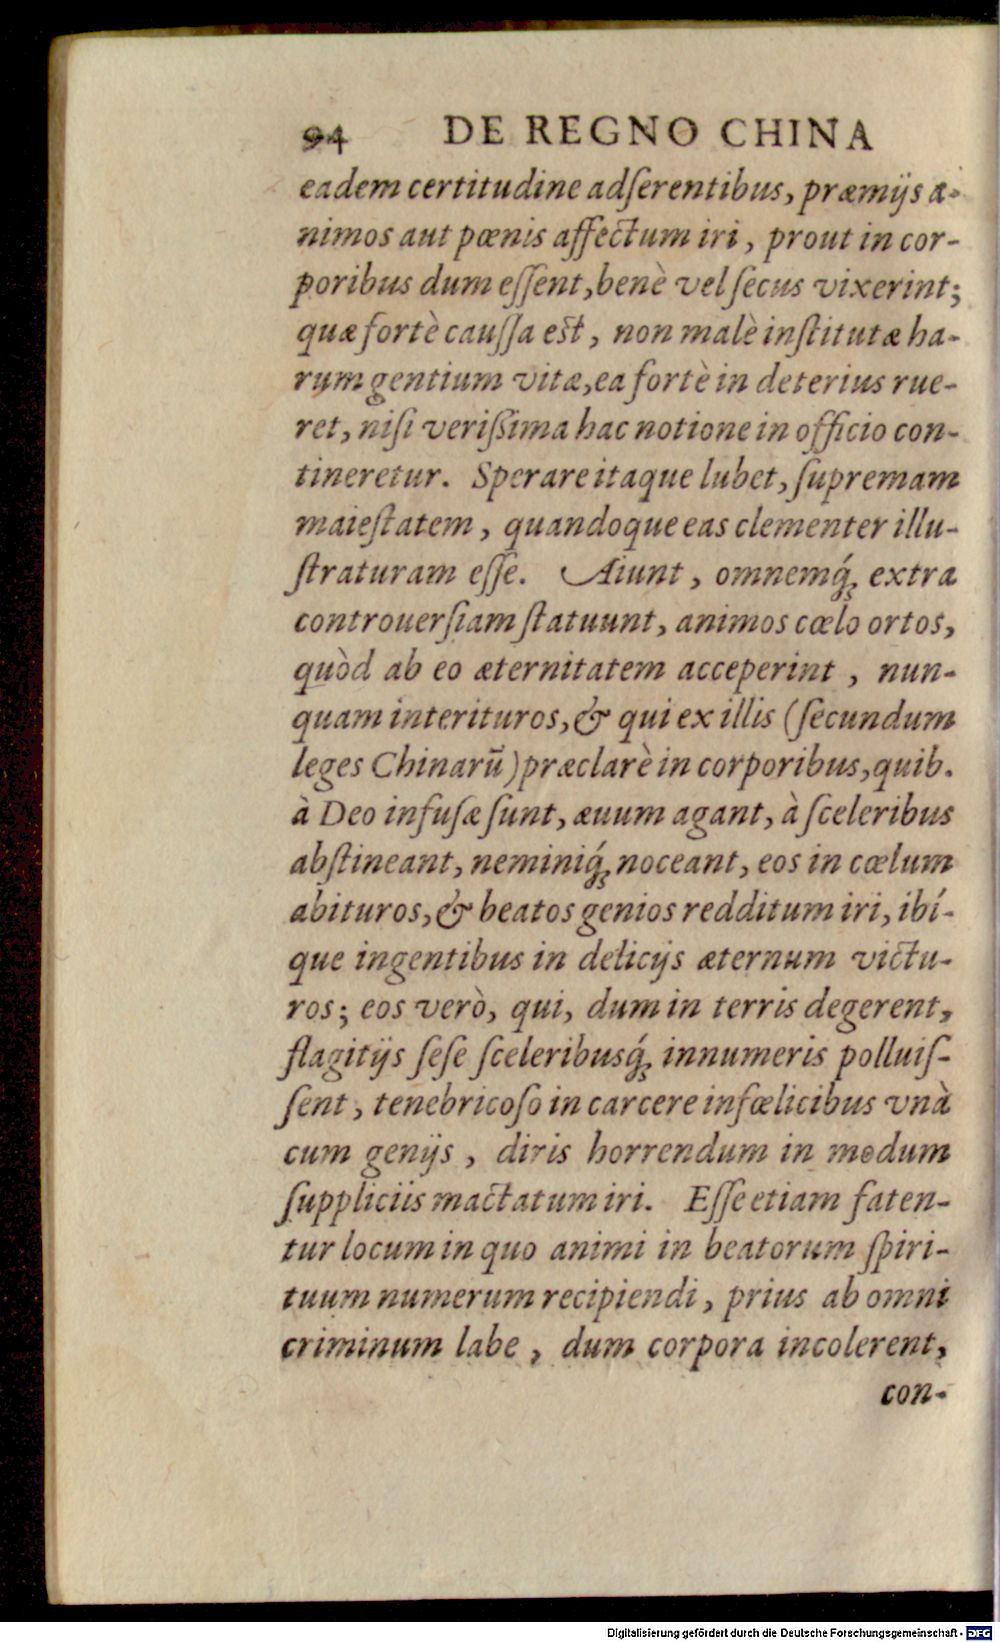 94 DE REGNO CHINA
eadem certitudine adſerentibus, præmijs a-
nimos aut pœnis affectum iri, prout in cor-
poribus dum eſſent, benè vel ſecus vixerint;
quæ fortè cauſſa eſt, non malè inſtitutæ ha-
rum gentium vitæ, ea fortè in deterius rue-
ret, niſi veriſsima hac notione in officio con-
tineretur. Sperare itaque lubet, ſupremam
maieſtatem, quandoque eas clementer illu-
ſtraturam eſſe. Aiunt, omnemq́; extra
controuerſiam ſtatuunt, animos cœlo ortos,
quòd ab eo æternitatem acceperint, nun-
quam interituros, & qui ex illis (ſecundum
leges Chinarū) præclarè in corporibus, quib.
à Deo infuſæ ſunt, æuum agant, à ſceleribus
abſtineant, neminiq́; noceant, eos in cœlum
abituros, & beatos genios redditum iri, ibí-
que ingentibus in delicijs æternum victu-
ros; eos verò, qui, dum in terris degerent,
flagitijs ſeſe ſceleribusq́; innumeris polluiſ-
ſent, tenebricoſo in carcere infœlicibus vnà
cum genijs, diris horrendum in modum
ſuppliciis mactatum iri. Eſſe etiam faten-
tur locum in quo animi in beatorum ſpiri-
tuum numerum recipiendi, prius ab omni
criminum labe, dum corpora incolerent,
con-
Digitalisierung gefördert durch die Deutsche Forschungsgemeinschaft - DFG